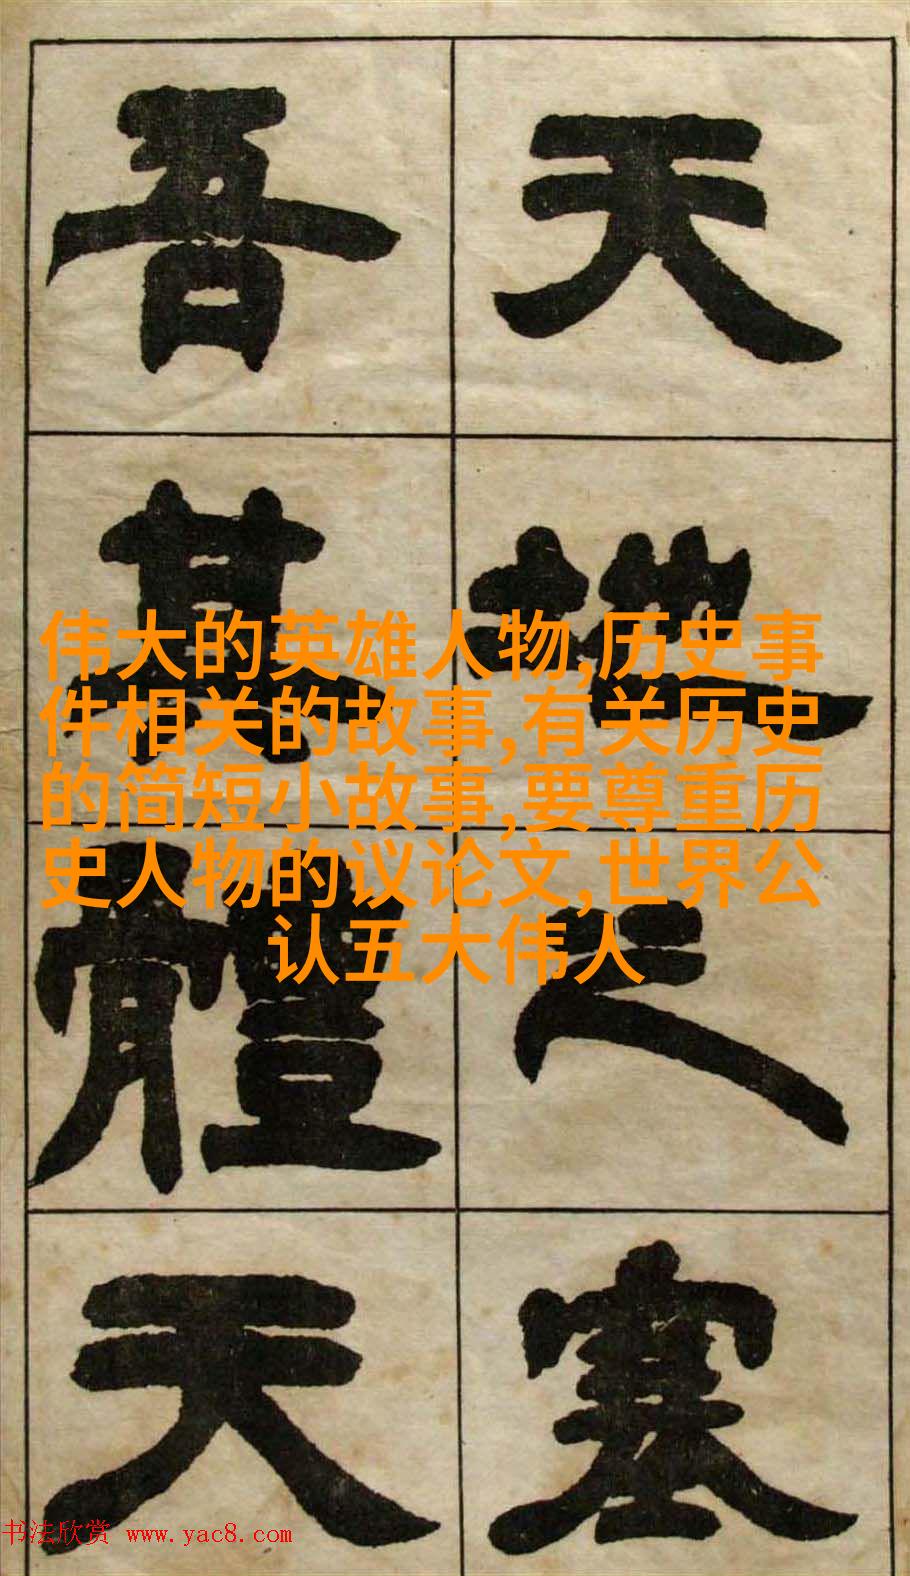 天地之塞
吾其體天
伟大的英雄人物,历史事
件相关的故事,有关历史
的简短小故事,要尊重历
史人物的议论文,世界公
认五大伟人
书法欣赏 www.yac8.com